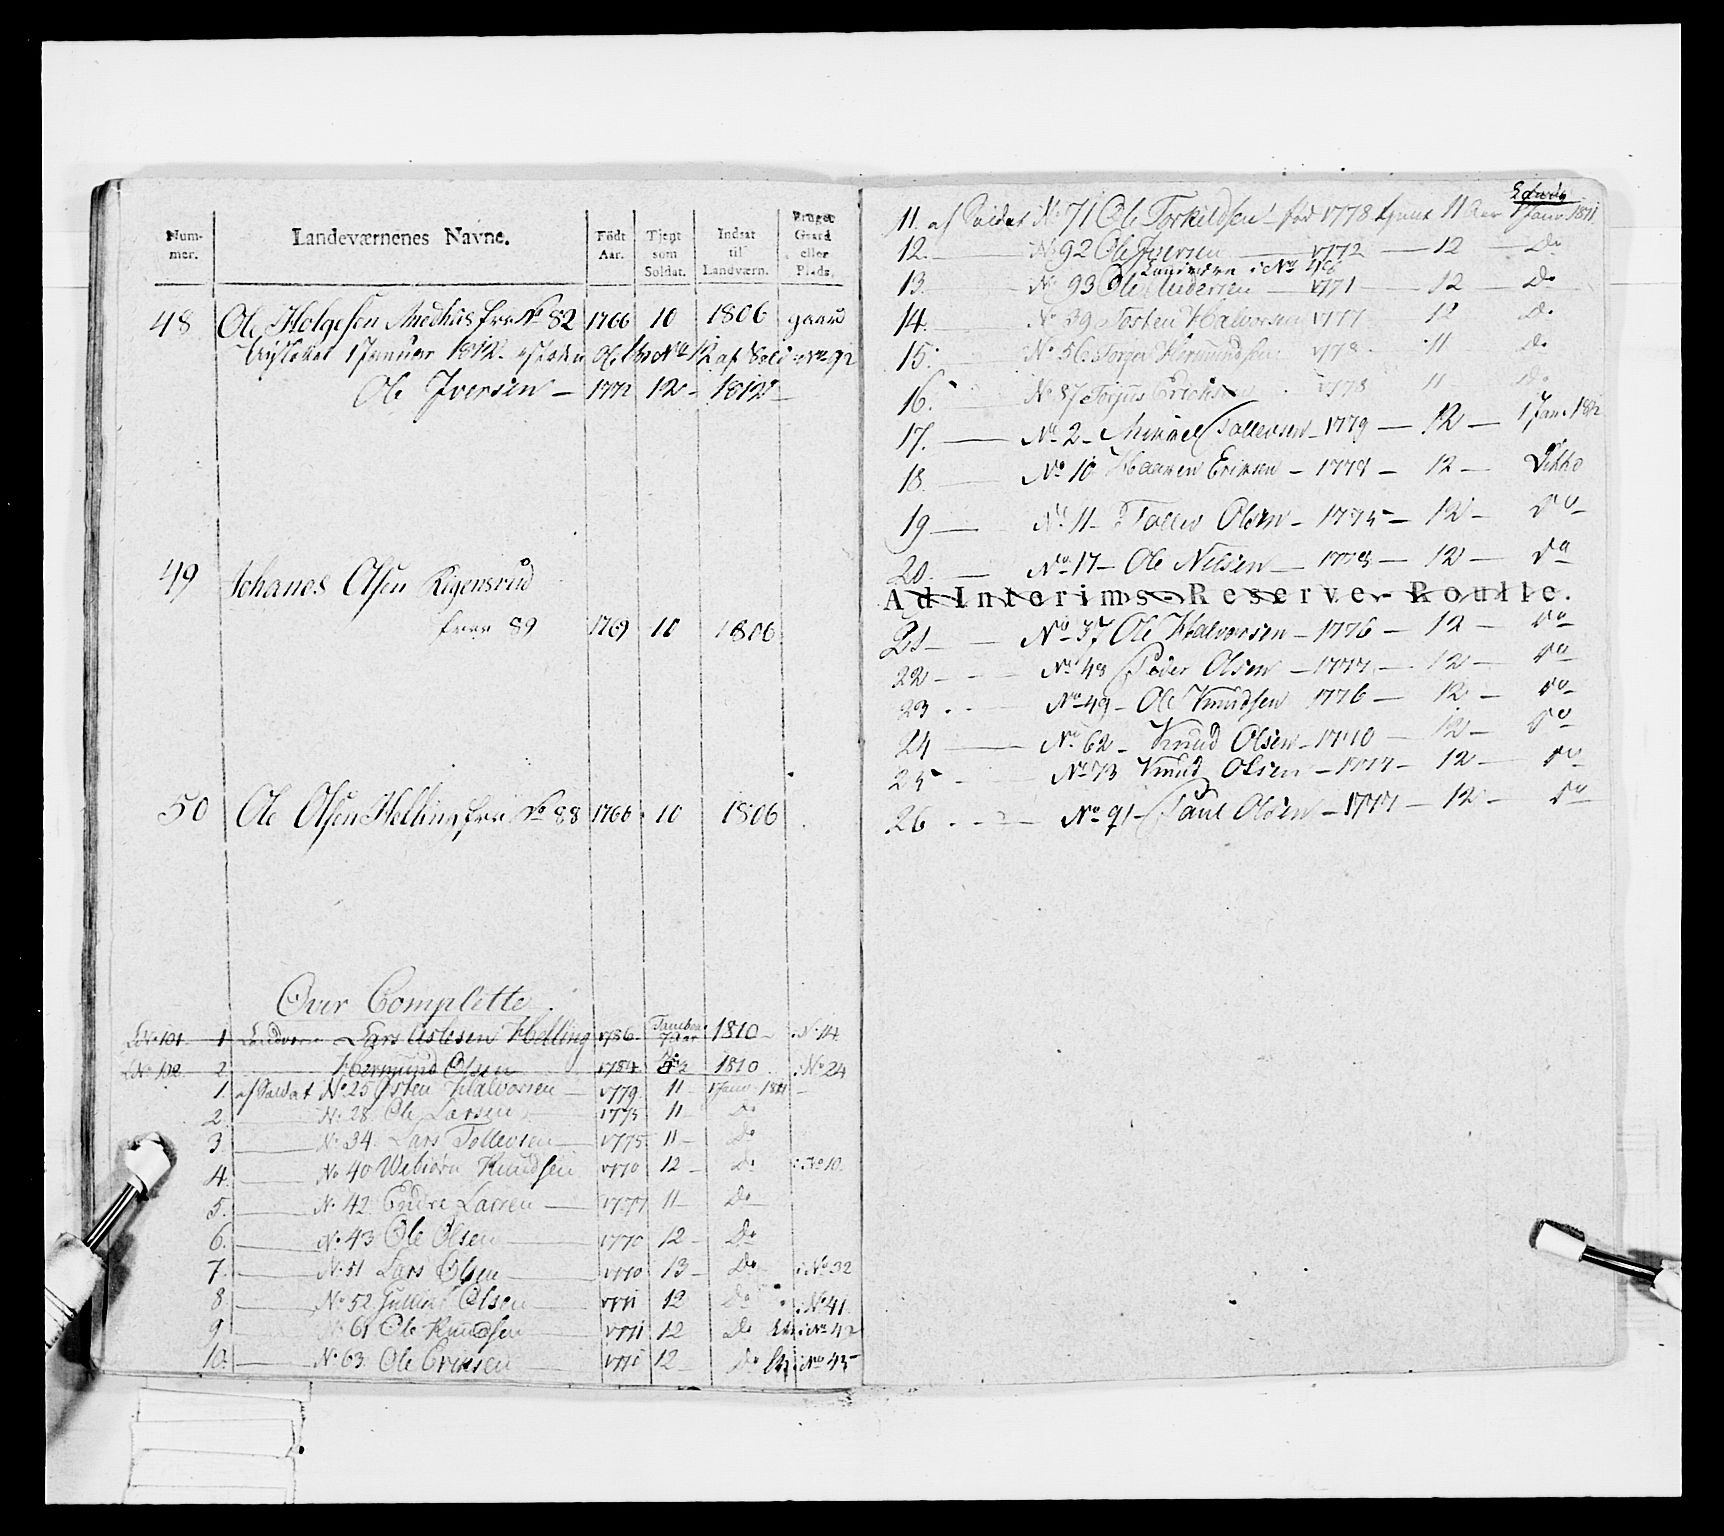 Num-mer. Landeværnenes Navne. Födt Aar. Tjent som Soldat. Indsat til Landværn. Bruger Gaard eller Plads.
48 Ole Holgesen Medhus fra No 82 1766 10 1806 gaard
1 Januar 1812 No 12 af Sold No 92
Ole Iversen - 1772 12 - 1812 -
49 Johanes Olsen Rigensrud
fra 89 1769 10 1806
50 Ole Olsen Helling fra No 88 1766 10 1806
Over Complette
No 101 1 Landværn Lars Aslesen Helling 1786 7 Aar 1810 i No 14
No 102 2 Hermund Olsen 1784 1810 i No 24
1. af Soldat No 25 Østen Halvorsen 1779 11 1 Janr 1811
2. No 28 Ole Larsen 1775 11 Do
3 No 34 Lars Tollevsen 1775 11 Do
4. No 40 Webiørn Knudsen 1770 12 Do i No 10
5. No 42 Endre Larsen 1777 11 Do
6. No 43 Ole Olsen 1770 12 Do
7. No 51 Lars Olsen 1770 13 Do i No 32
8. No 52 Olsen 1771 12 Do i No 41
9. No 61 Ole Knudsen 1771 12 Do i No 42
10. No 63 Ole Eriksen 1771 12 Do i No 45
11. af Soldat No 71 Ole Torkildsen fød 1778 tjent 11 Aar 1 Janr 1811
12. No 92 Ole Iversen 1772 12 Do
Landværn i No 48
13. No 93 Ole Andersen 1771 12 Do
14. No 39 Torsten Halvorsen 1777 12 Do
15. No 56 Torger Hermundsen 1778 11 Do
16. No 87 Torjus Erichsen 1778 11 Do
17. No 2 - Mikael Tollevsen - 1779 - 12 - 1 Jan. 1812
18. No 10 Haaken Eriksen - 1778 - 12 - Ditto
19 No 11 - Tollev Olsen - 1775 - 12 - do
20. No 17 - Ole Nilsen - 1778 - 12 - do
Ad Interims-Reserve-Roulle.
21 No 37 Ole Halvorsen - 1776 - 12 - do
22 No 48 Peder Olsen - 1777 - 12 - do
23 No 49 - Ole Knudsen 1776 - 12 - do
24 No 62 - Knud Olsen - 1770 - 12 - do
25 No 73 Knud Olsen - 1777 - 12 - do
26 No 91 - Paul Olsen - 1777 - 12 - do